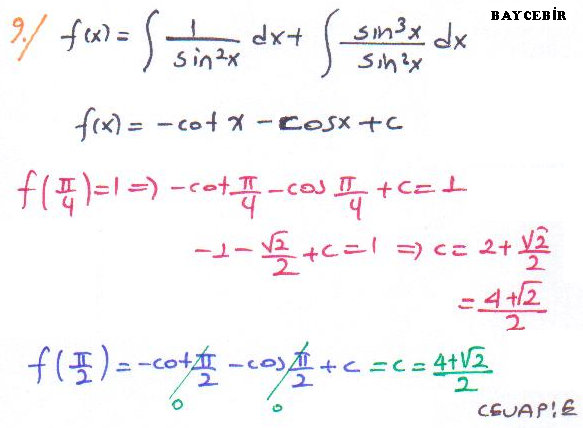 BAYCEBİR
9./ f(x) = ∫ 1/sin²x dx + ∫ sin³x/sin²x dx
f(x) = -cot x - cosx + c
f(π/4) = 1 => -cot π/4 - cos π/4 + c = 1
-1 - √2/2 + c = 1 => c = 2 + √2/2
= 4+√2/2
f(π/2) = -cot π/2 - cos π/2 + c = c = 4+√2/2
0 0
CEVAP: E